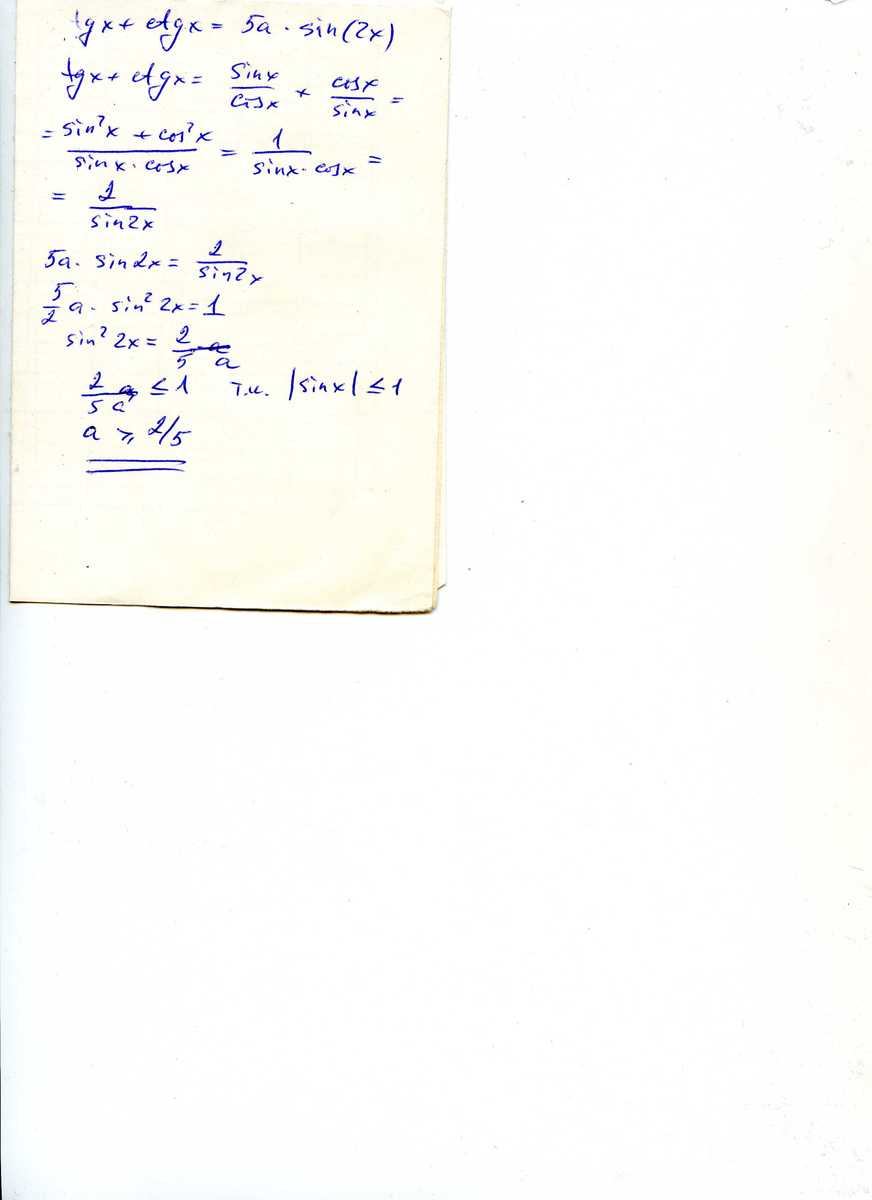 tgx + ctgx = 5a · sin(2x)
tgx + ctgx = sinx/cosx + cosx/sinx =
= (sin²x + cos²x)/(sinx · cosx) = 1/(sinx · cosx) =
= 2/sin2x
5a · sin2x = 2/sin2x
5/2 a · sin² 2x = 1
sin² 2x = 2/5a
2/5a ≤ 1 т.к. |sinx| ≤ 1
a ⩾ 2/5